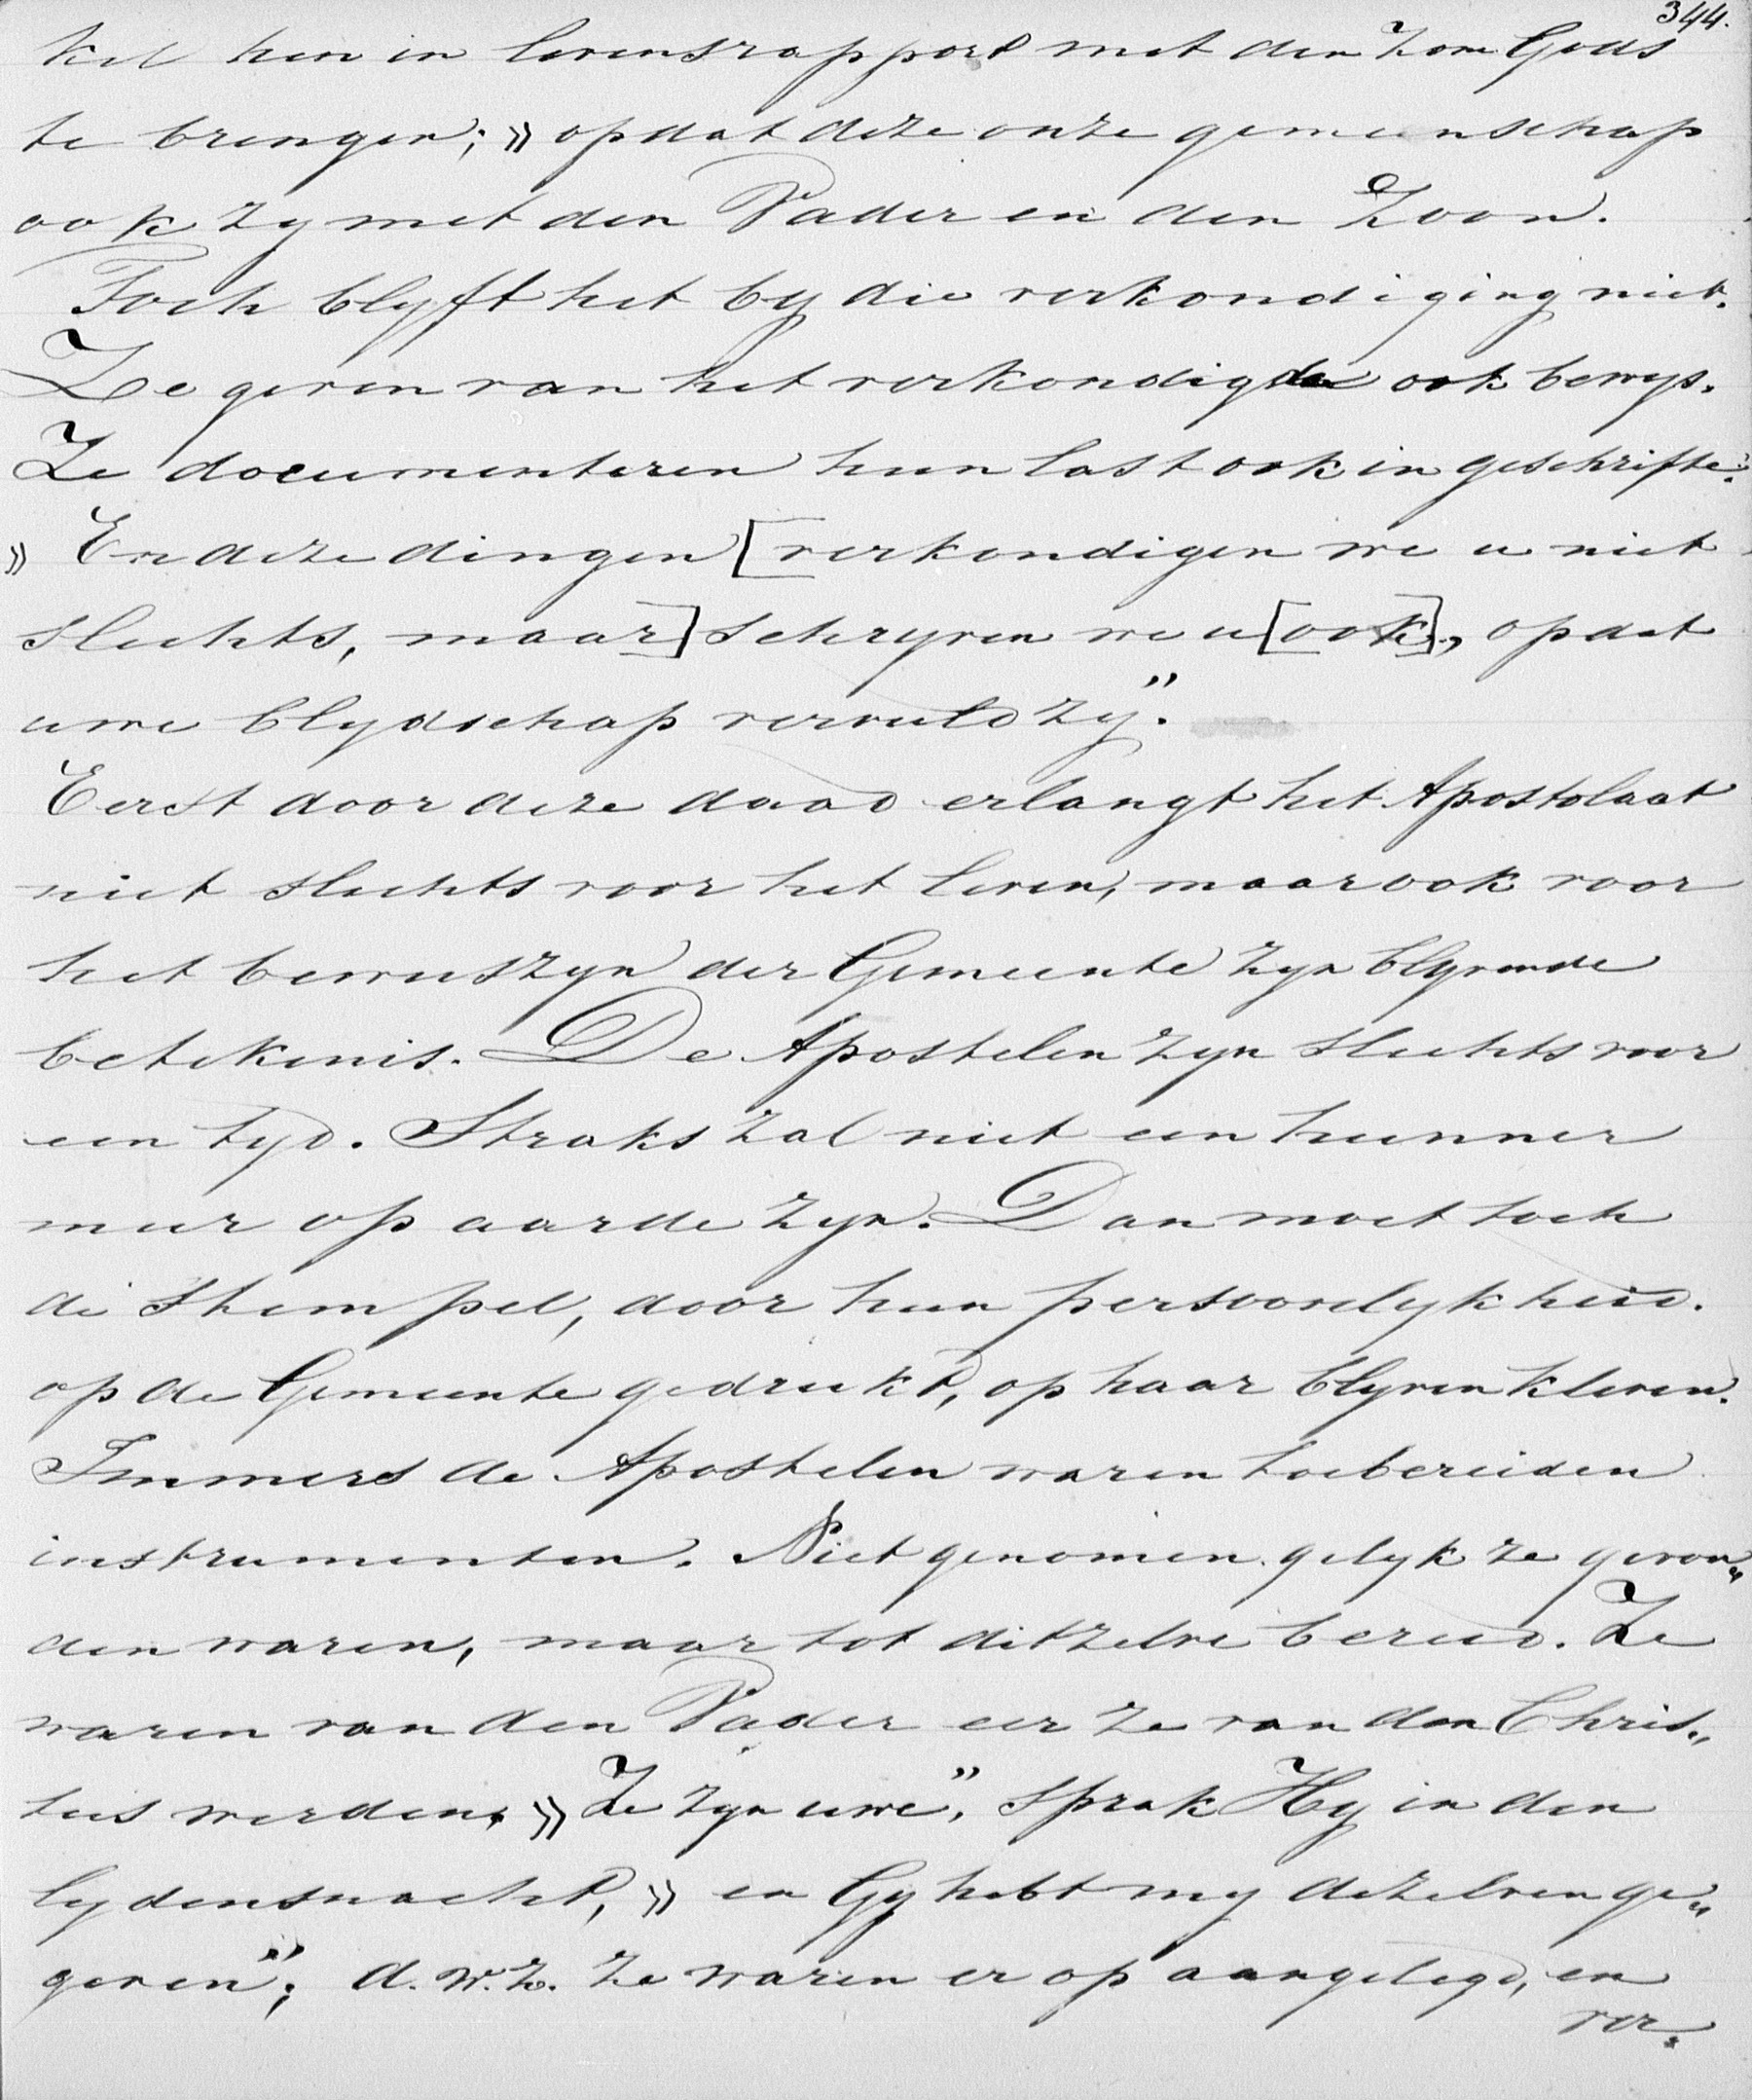 344.
kel hen in levensrapport met den Zone Gods
te brengen; » opdat deze onze gemeenschap
ook zy met den Vader en den Zoon.
Toch blyft het by die verkondiging niet.
Ze geven van het verkondigde ook bewys.
Ze documenteren hun last ook in geschrifte:
» En deze dingen [verkondigen we u niet
slechts, maar] schryven we u [ook], opdat
uwe blydschap vervuld zy".
Eerst door deze daad erlangt het Apostolaat
niet slechts voor het leven, maar ook voor
het bewustzyn der Gemeente zyn blyvende
betekenis. De Apostelen zyn slechts voor
een tyd. Straks zal niet een hunner
meer op aarde zyn. Dan moet toch
de stempel, door hun persoonlykheid.
op de Gemeente gedrukt, op haar blyven kleven.
Immers de Apostelen waren toebereiden
instrumenten. Niet genomen gelyk ze gevon„
den waren, maar tot ditzelve bereid. Ze
waren van den Vader eer ze van den Chris„
tus werden. » Ze zyn uwe", sprak Hy in den
lydensnacht, » en Gy hebt my dezelven ge„
geven"; d. w. z. ze waren er op aangelegd, en
ver„